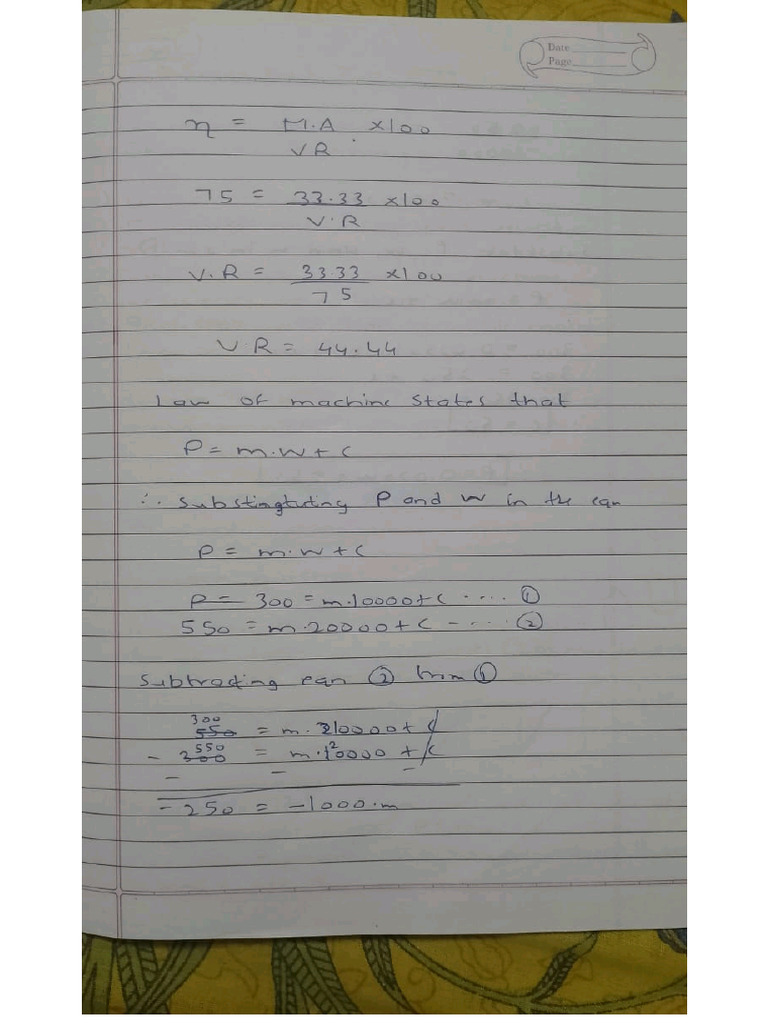 Date
Page
η = M.A × 100
VR
75 = 33.33 × 100
V.R
V.R = 33.33 × 100
75
V.R = 44.44
Law of machine states that
P = m.w + c
∴ Substingtuting P and w in the eqn
P = m.w + c
P = 300 = m.10000 + c .... ①
550 = m.20000 + c - .... ②
Subtracting eqn ② from ①
300
550 = m. 10000 + c
550
- 300 = m. 20000 + c
- - -
-250 = -1000.m